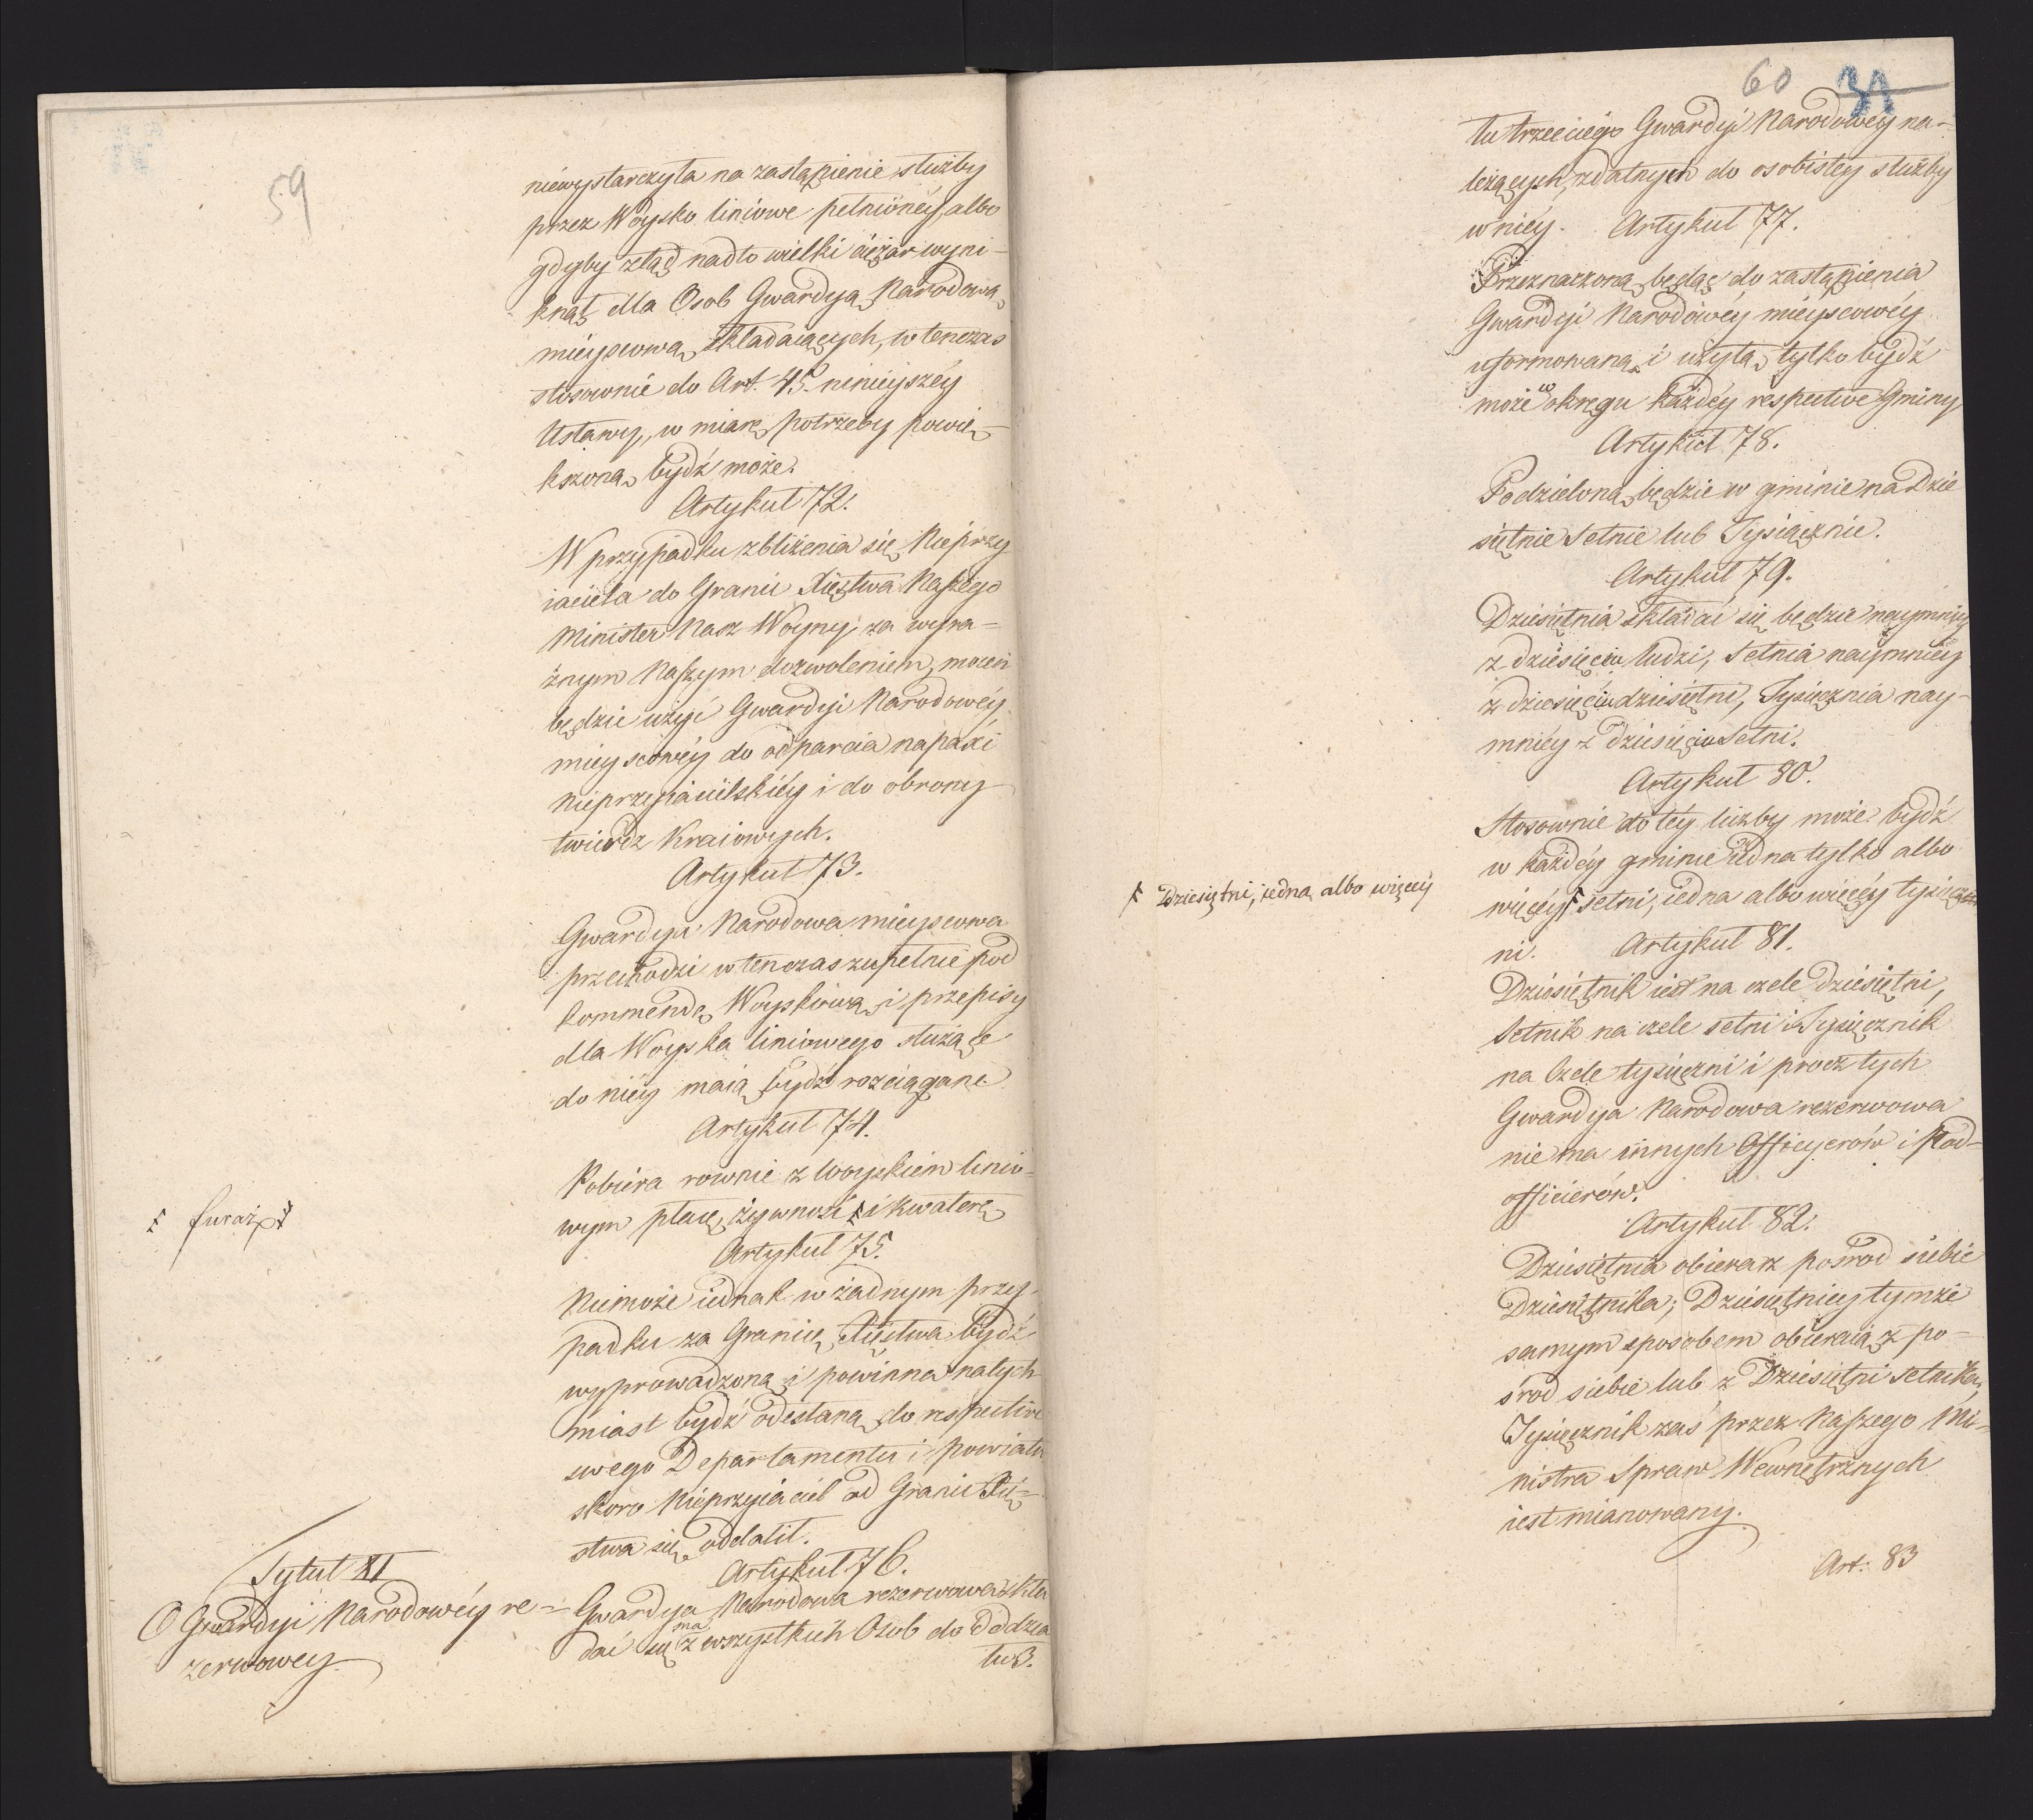 59
niewystarczyła na zastąpienie służby
przez Woysko liniowe pełnionéy, albo
gdyby ztąd nadto wielki ciężar wyni-
knął dla Osob Gwardyą Narodową
mieyscową składaiących, wtenczas
stosownie do Art. 45. ninieyszéy
Ustawy, w miarę potrzeby powię-
kszoną bydź może.
Artykuł 72.
W przypadku zbliżenia się Nieprzy
iaciela do Granic Xięstwa Naszego
Minister Nasz Woyny, za wyra=
źnym Naszym dozwoleniem, mocen
będzie użyć Gwardyi Narodowéy
mieyscowéy do odparcia napaści
nieprzyiacielskiéy i do obrony
twierdz Kraiowych.
Artykuł 73.
Gwardya Narodowa mieyscowa
przechodzi wtenczas zupełnie pod
kommendę Woyskową i przepisy
dla Woyska liniowego służące
do niéy maią bydź rozciągane
Artykuł 74.
Pobiera rownie z Woyskiem linio-
wym płacę, żywność ⸸ i kwaterę
⸸ furaż ⸸
Artykuł 75.
Niemoże iednak w żadnym przy-
padku za Granicę Xięstwa bydź
wyprowadzoną i powinna natych
miast bydź odesłaną do respective
swego Departamentu i powiatu
skoro Nieprzyiaciel od Granic Xię=
stwa się oddalił.
Artykuł 76.
Tytuł XI
O Gwardyi Narodowéy re=
zerwowey
Gwardya Narodowa rezerwowa skła
dać się ma z wszystkich Osob do Oddzia
łu 3.
60 31
łu trzeciego Gwardyi Narodowey na-
leżących, zdatnych do osobistey służby
w niéy. Artykuł 77.
Przeznaczoną będąc do zastąpienia
Gwardyi Narodowéy mieyscowéy
uformowaną i użytą tylko bydź
może w okręgu każdéy respective Gminy
Artykuł 78.
Podzieloną będzie w gminie na Dzie
siętnie Setnie lub Tysiącznie.
Artykuł 79.
Dziesiętnia składać się będzie naymniéy
z dziesięciu ludzi, Setnia naymniéy
z dziesięciu dziesiętni, Tysiącznia nay-
mniéy z dziesięciu Setni.
Artykuł 80.
Stosownie do téy liczby może bydź
w każdéy gminie iedna tylko albo
więcéy ⸸ setni, iedna albo więcéy tysiącz
⸸ Dziesiętni, iedna albo więcéy
ni. Artykuł 81.
Dziesiętnik iest na czele Dziesiętni,
Setnik na czele setni i Tysiącznik
na Czele tysiączni i procz tych
Gwardya Narodowa rezerwowa
nie ma innych Officyerów i Pod-
officierów.
Artykuł 82.
Dziesiętnia obiera z pośrod siebie
Dziesiętnika; Dziesiętnicy tymże
samym sposobem obieraią z po-
środ siebie lub z Dziesiętni Setnika,
Tysiącznik zaś przez Naszego Mi-
nistra Spraw Wewnętrznych
iest mianowany.
Art: 83